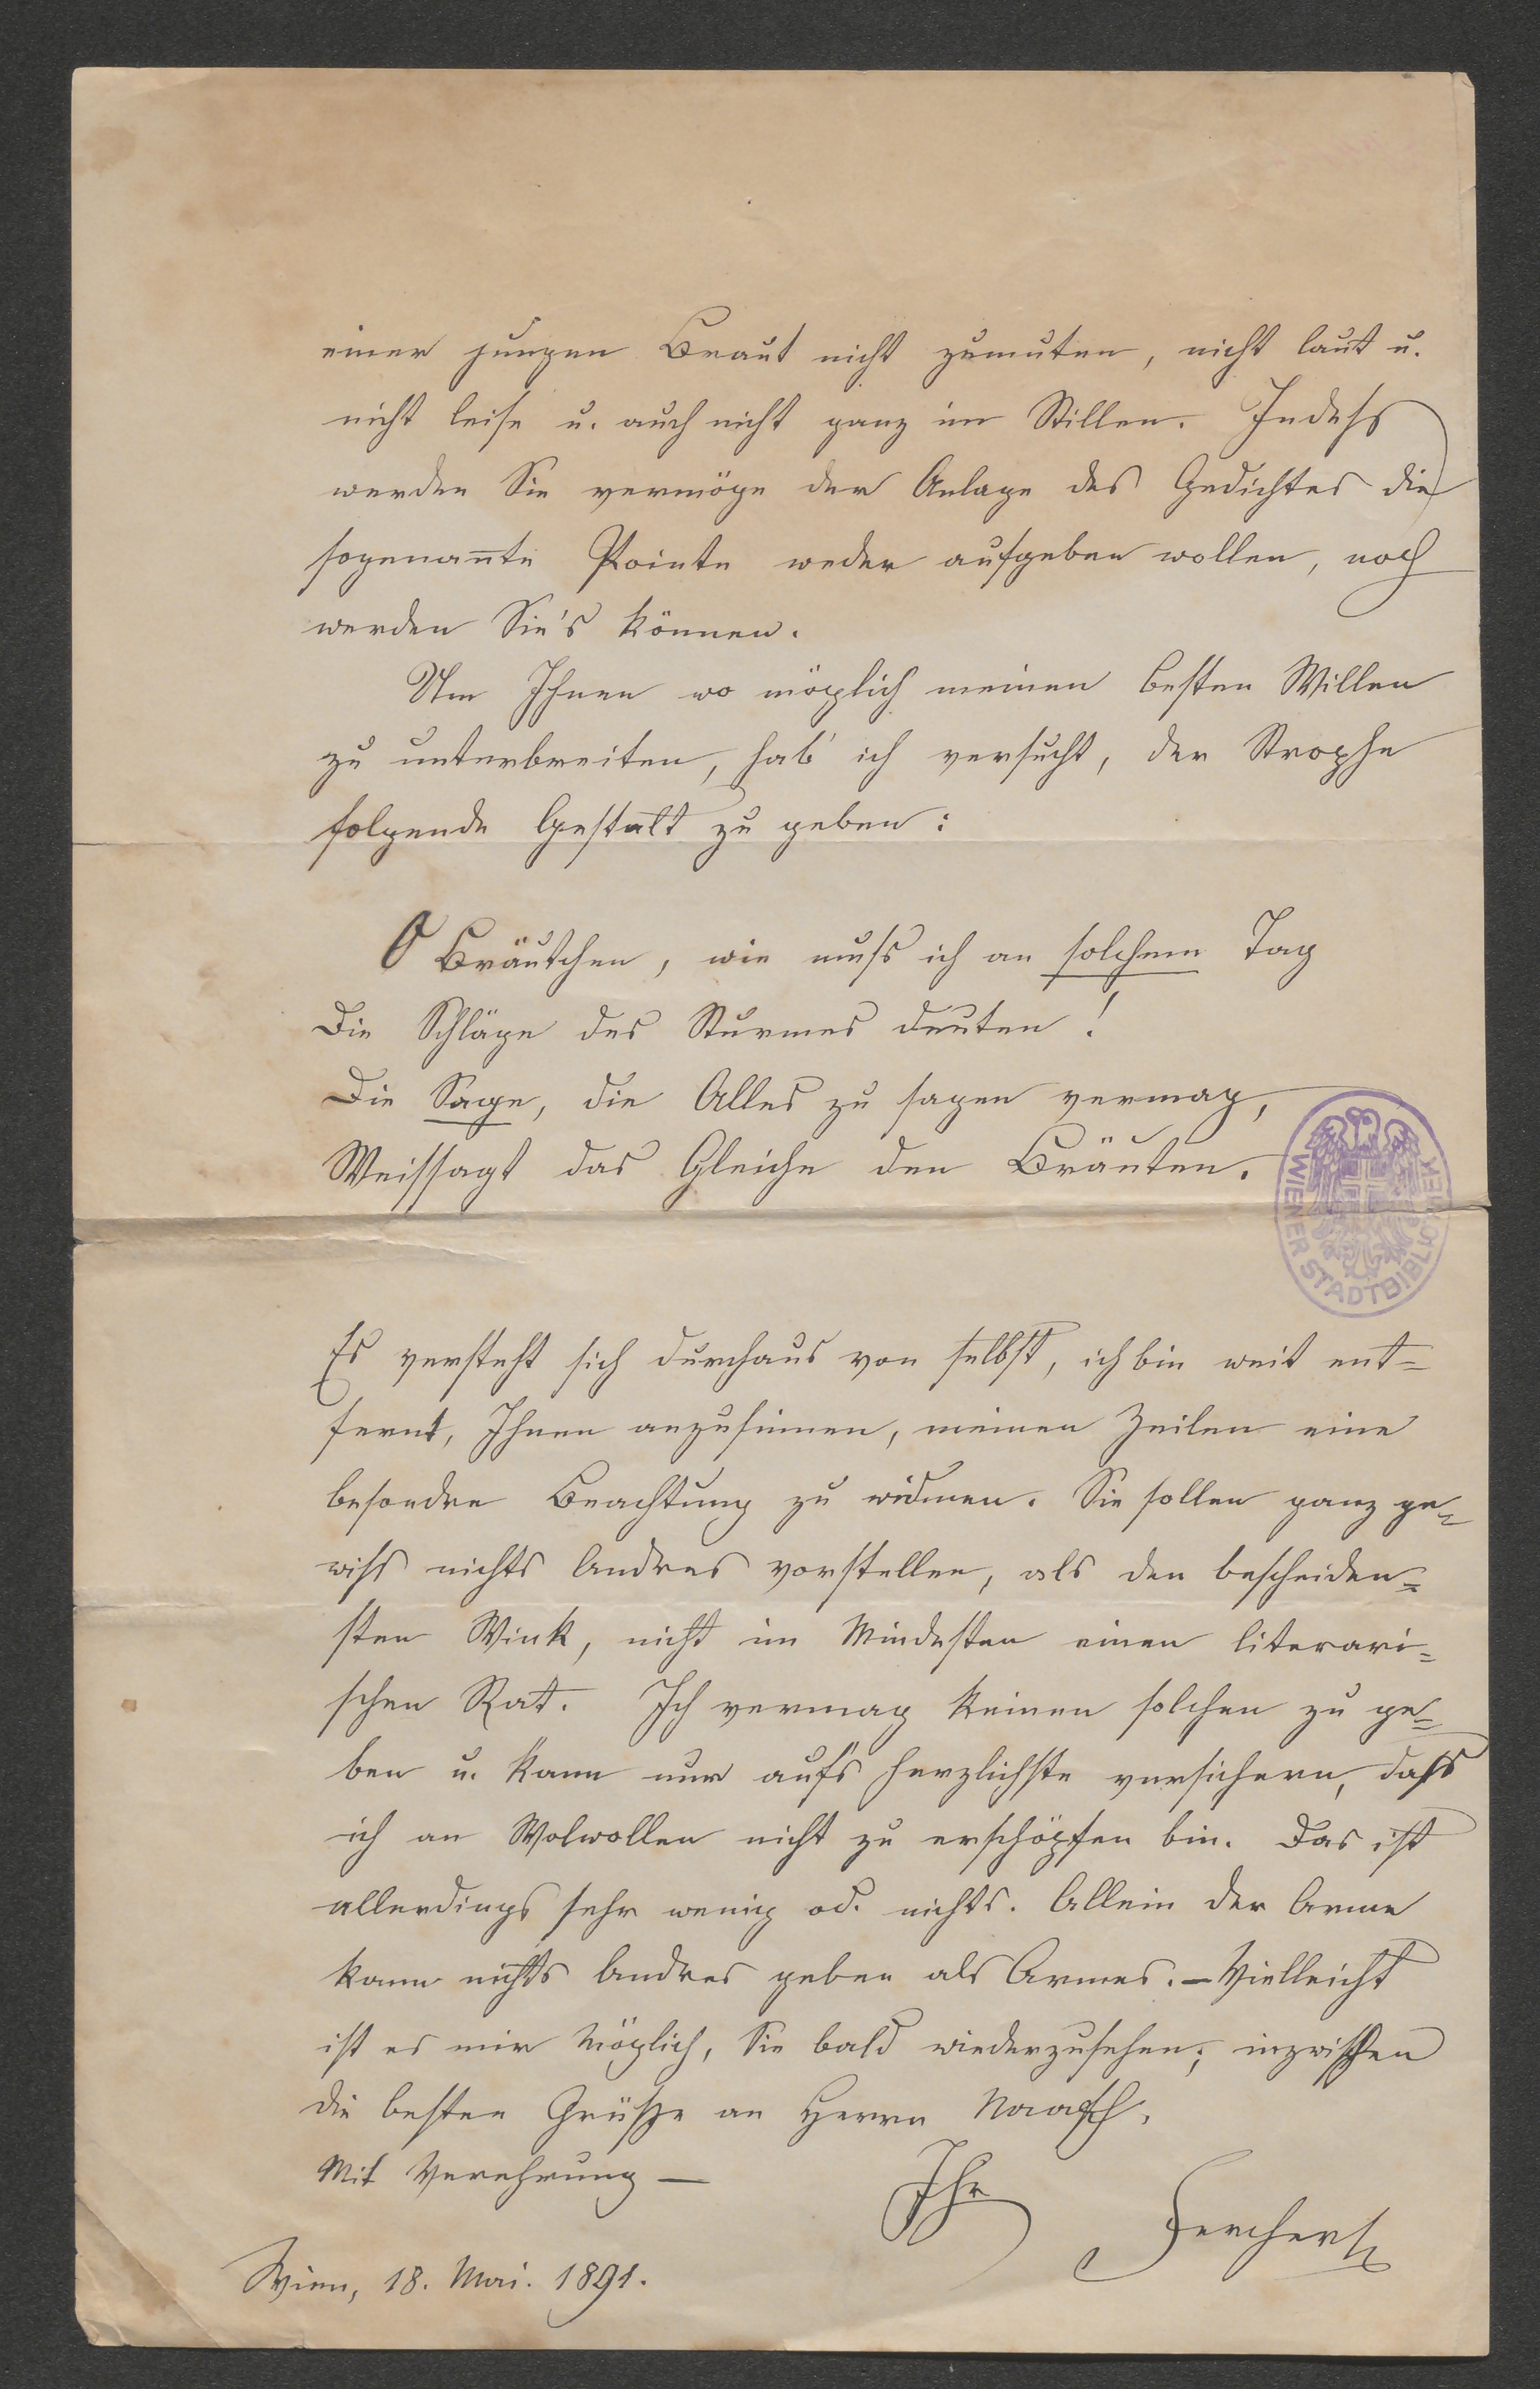 einer jungen Braut nicht zumuten, nicht laut u.
nicht leise u. auch nicht ganz im Stillen. Indess
werden Sie vermöge der Anlage des Gedichtes die
sogenannte Pointe weder aufgeben wollen, noch
werden Sie's können.
Um Ihnen wo möglich meinen besten Willen
zu unterbreiten, hab' ich versucht, der Strophe
folgende Gestalt zu geben:
O Bräutchen, wie muss ich an solchem Tag
Die Schläge des Sturmes deuten!
Die Sage, die Alles zu sagen vermag,
Weissagt das Gleiche den Bräuten.
WIENER STADTBIBLIOTHEK
Es versteht sich durchaus von selbst, ich bin weit ent=
fernt, Ihnen anzusinnen, meinen Zeilen eine
besondre Beachtung zu widmen. Sie sollen ganz ge=
wiss nichts Andres vorstellen, als den bescheiden=
sten Wink, nicht im Mindesten einen literari=
schen Rat. Ich vermag keinen solchen zu ge=
ben u. kann nur auf's herzlichste versichern, dass
ich an Wolwollen nicht zu erschöpfen bin. Das ist
allerdings sehr wenig od. nichts. Allein der Arme
kann nichts Andres geben als Armes. – Vielleicht
ist es mir möglich, Sie bald wiederzusehen; inzwischen
die besten Grüsse an Herrn Naaff.
Mit Verehrung –
Ihr Fercher
Wien, 18. Mai. 1891.